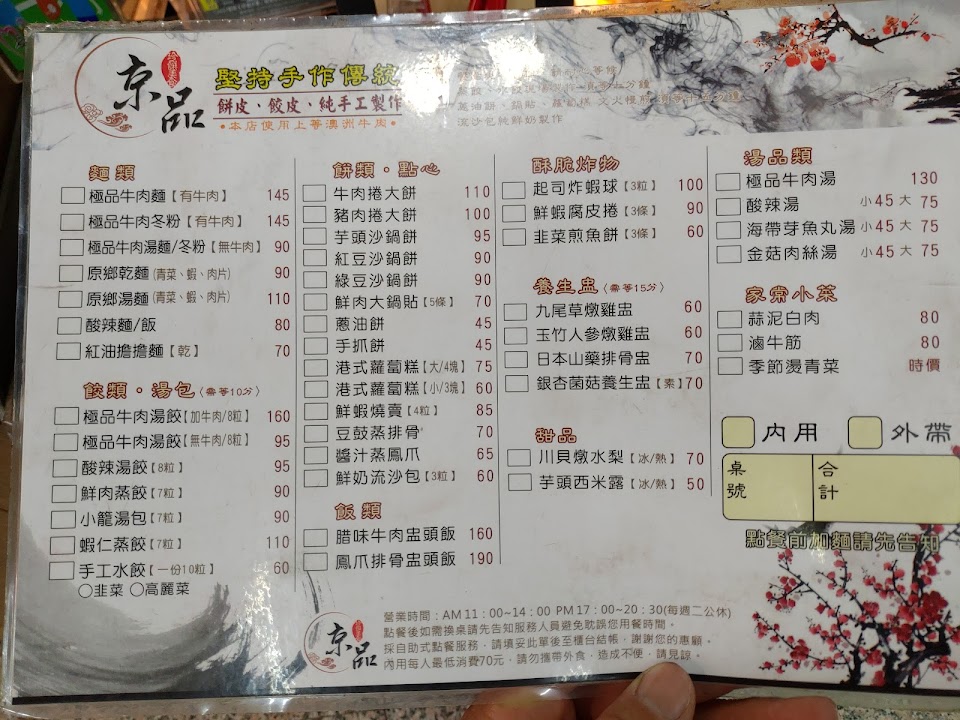 京品
堅持手作傳統
餅皮、餃皮、純手工製作
●本店使用上等澳洲牛肉●
流沙包純鮮奶製作
麵類
極品牛肉麵【有牛肉】 145
極品牛肉冬粉【有牛肉】 145
極品牛肉湯麵/冬粉【無牛肉】 90
原鄉乾麵(青菜、蝦、肉片) 90
原鄉湯麵(青菜、蝦、肉片) 110
酸辣麵/飯 80
紅油擔擔麵【乾】 70
餃類・湯包〈需等10分〉
極品牛肉湯餃【加牛肉/8粒】 160
極品牛肉湯餃【無牛肉/8粒】 95
酸辣湯餃【8粒】 95
鮮肉蒸餃【7粒】 90
小籠湯包【7粒】 90
蝦仁蒸餃【7粒】 110
手工水餃【一份10粒】 60
○韭菜 ○高麗菜
餅類・點心
牛肉捲大餅 110
豬肉捲大餅 100
芋頭沙鍋餅 95
紅豆沙鍋餅 90
綠豆沙鍋餅 90
鮮肉大鍋貼【5條】 70
蔥油餅 45
手抓餅 45
港式蘿蔔糕【大/4塊】 75
港式蘿蔔糕【小/3塊】 60
鮮蝦燒賣【4粒】 85
豆鼓蒸排骨 70
醬汁蒸鳳爪 65
鮮奶流沙包【3粒】 60
飯類
腊味牛肉盅頭飯 160
鳳爪排骨盅頭飯 190
酥脆炸物
起司炸蝦球【3粒】 100
鮮蝦腐皮捲【3條】 90
韭菜煎魚餅【3條】 60
養生盅〈需等15分〉
九尾草燉雞盅 60
玉竹人參燉雞盅 60
日本山藥排骨盅 70
銀杏菌菇養生盅【素】70
甜品
川貝燉水梨【冰/熱】 70
芋頭西米露【冰/熱】 50
湯品類
極品牛肉湯 130
酸辣湯 小45 大75
海帶芽魚丸湯 小45 大75
金菇肉絲湯 小45 大75
家常小菜
蒜泥白肉 80
滷牛筋 80
季節燙青菜 時價
內用 外帶
桌號 合計
點餐前加麵請先告知
京品
營業時間：AM 11：00~14：00 PM 17：00~20：30(每週二公休)
點餐後如需換桌請先告知服務人員避免耽誤您用餐時間。
採自助式點餐服務，請填妥此單後至櫃台結帳，謝謝您的惠顧。
內用每人最低消費70元，請勿攜帶外食，造成不便，請見諒。